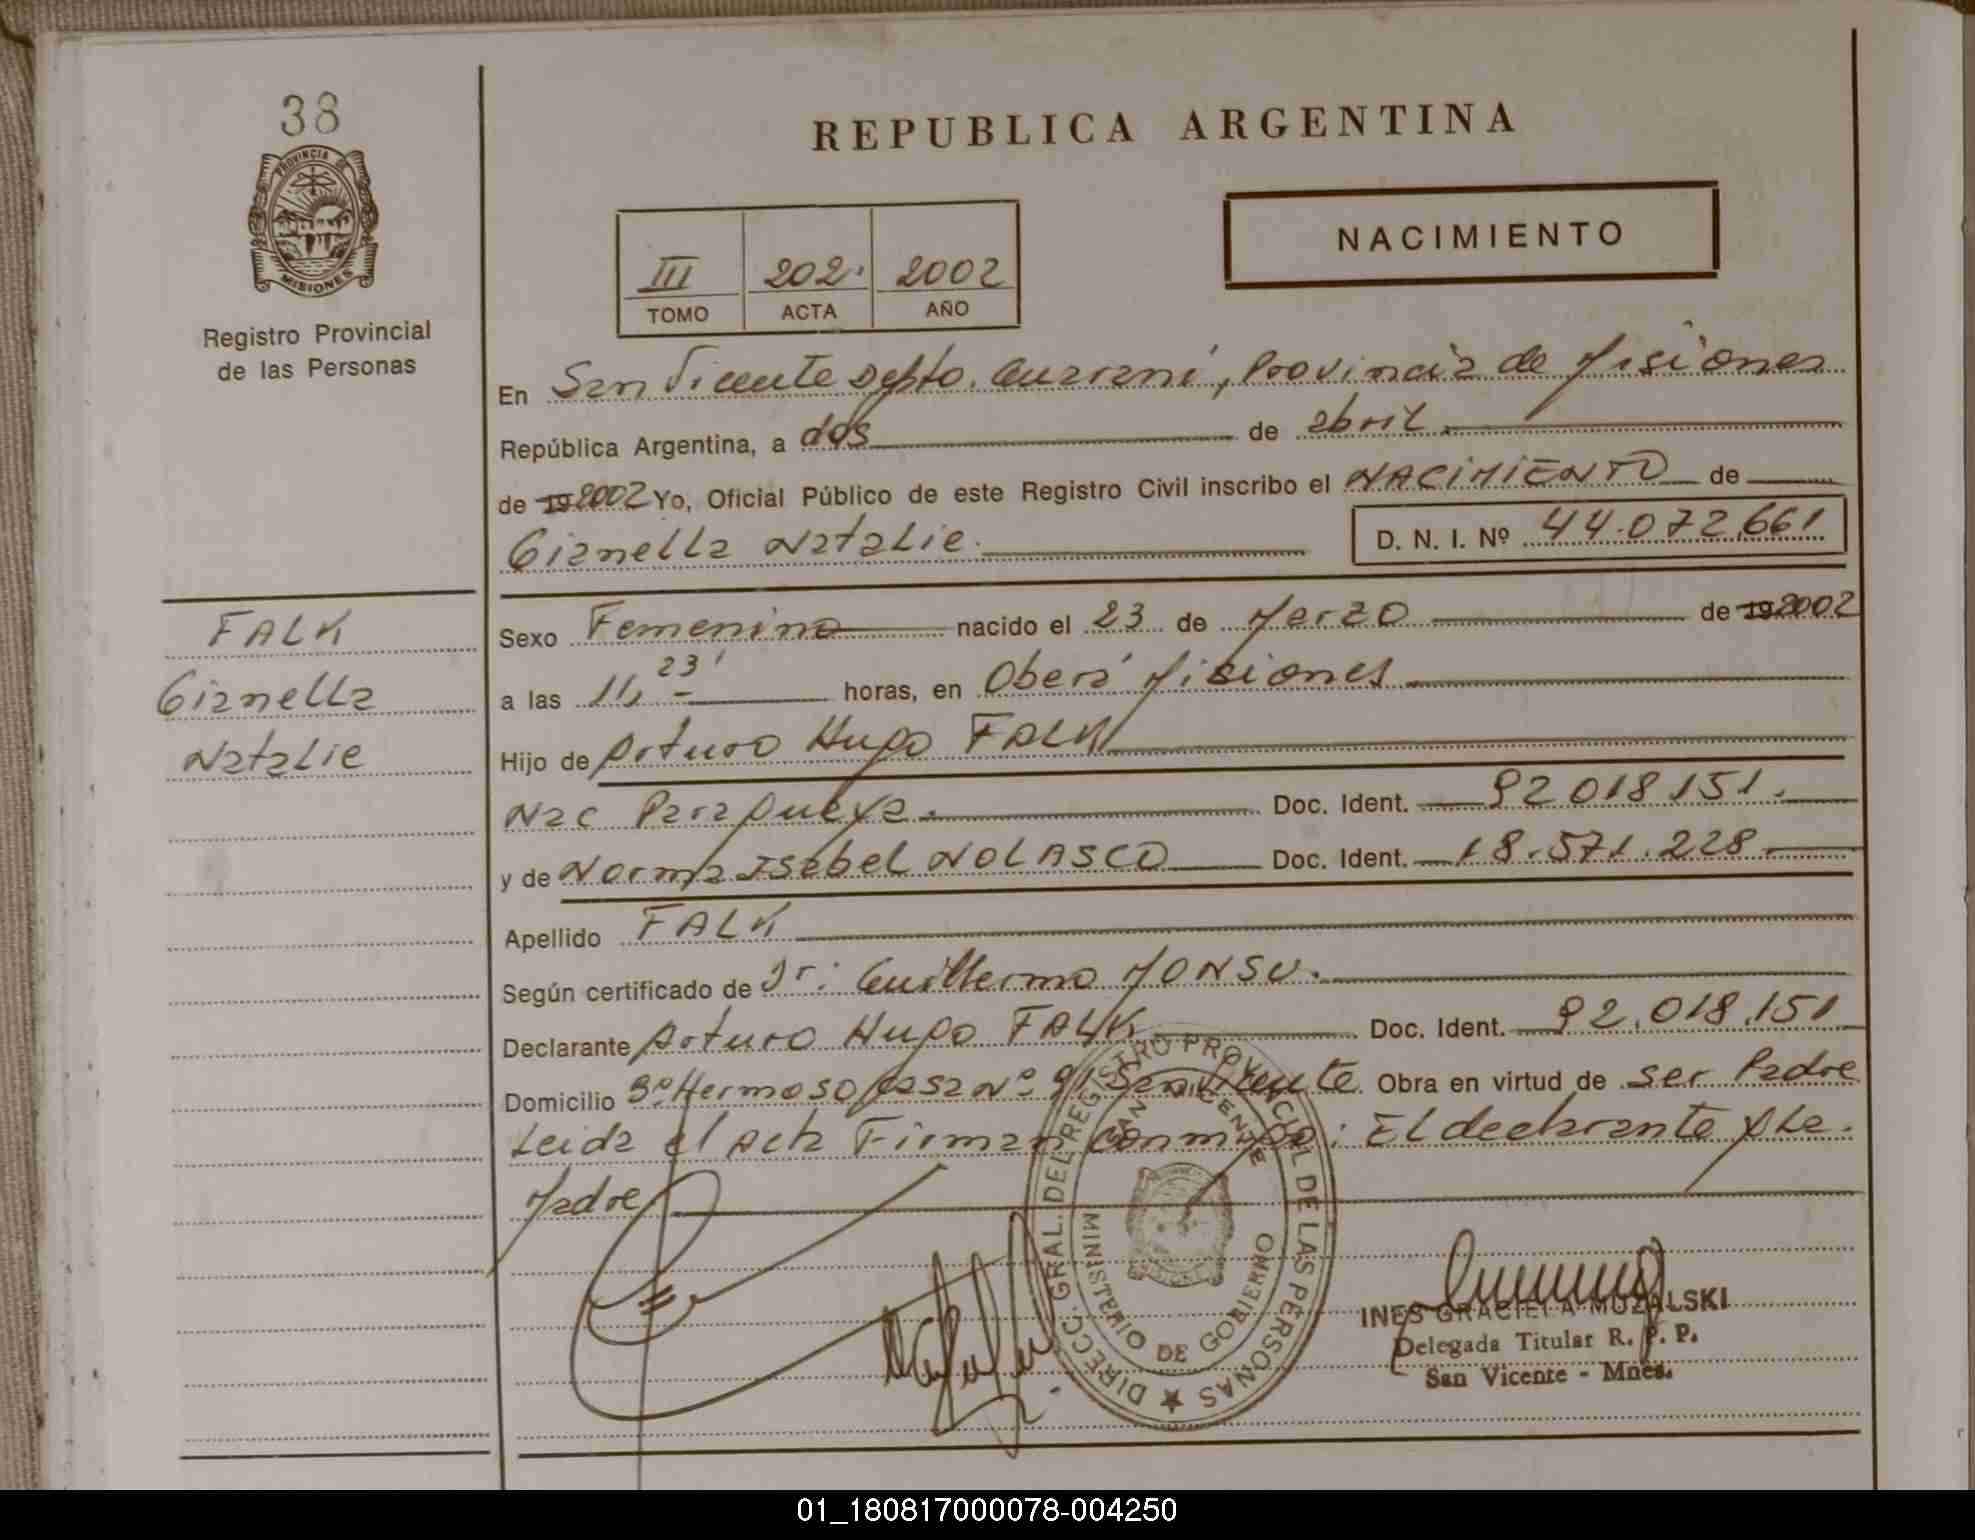 38
PROVINCIA DE
MISIONES
Registro Provincial
de las Personas
FALK
Gianella
Natalie
REPUBLICA ARGENTINA
III 202. 2002
TOMO ACTA AÑO
NACIMIENTO
En San Vicente Depto. Guaraní, Provincia de Misiones
República Argentina, a dos de abril
de 19 2002 Yo, Oficial Público de este Registro Civil inscribo el NACIMIENTO de
Gianella Natalie. D. N. I. Nº 44.072.661
Sexo Femenino nacido el 23 de Marzo de 19 2002
a las 11, 23' horas, en Oberá Misiones
Hijo de Arturo Hugo FALK
Nac Paraguaya. Doc. Ident. 92018151.
y de Norma Isabel NOLASCO Doc. Ident. 18.571.228.
Apellido FALK
Según certificado de Dr: Guillermo MONSU.
Declarante Arturo Hugo FALK Doc. Ident. 92.018.151
Domicilio Bº Hermoso Casa Nº 91 San Vicente Obra en virtud de ser Padre
Leida el Acta Firman conmigo: El declarante y la.
Madre
DIRECC. GRAL. DEL REGISTRO PROVINCIAL DE LAS PERSONAS
SAN VICENTE
MINISTERIO DE GOBIERNO
INES GRACIELA MUZALSKI
Delegada Titular R. P. P.
San Vicente - Mnes.
01_180817000078-004250